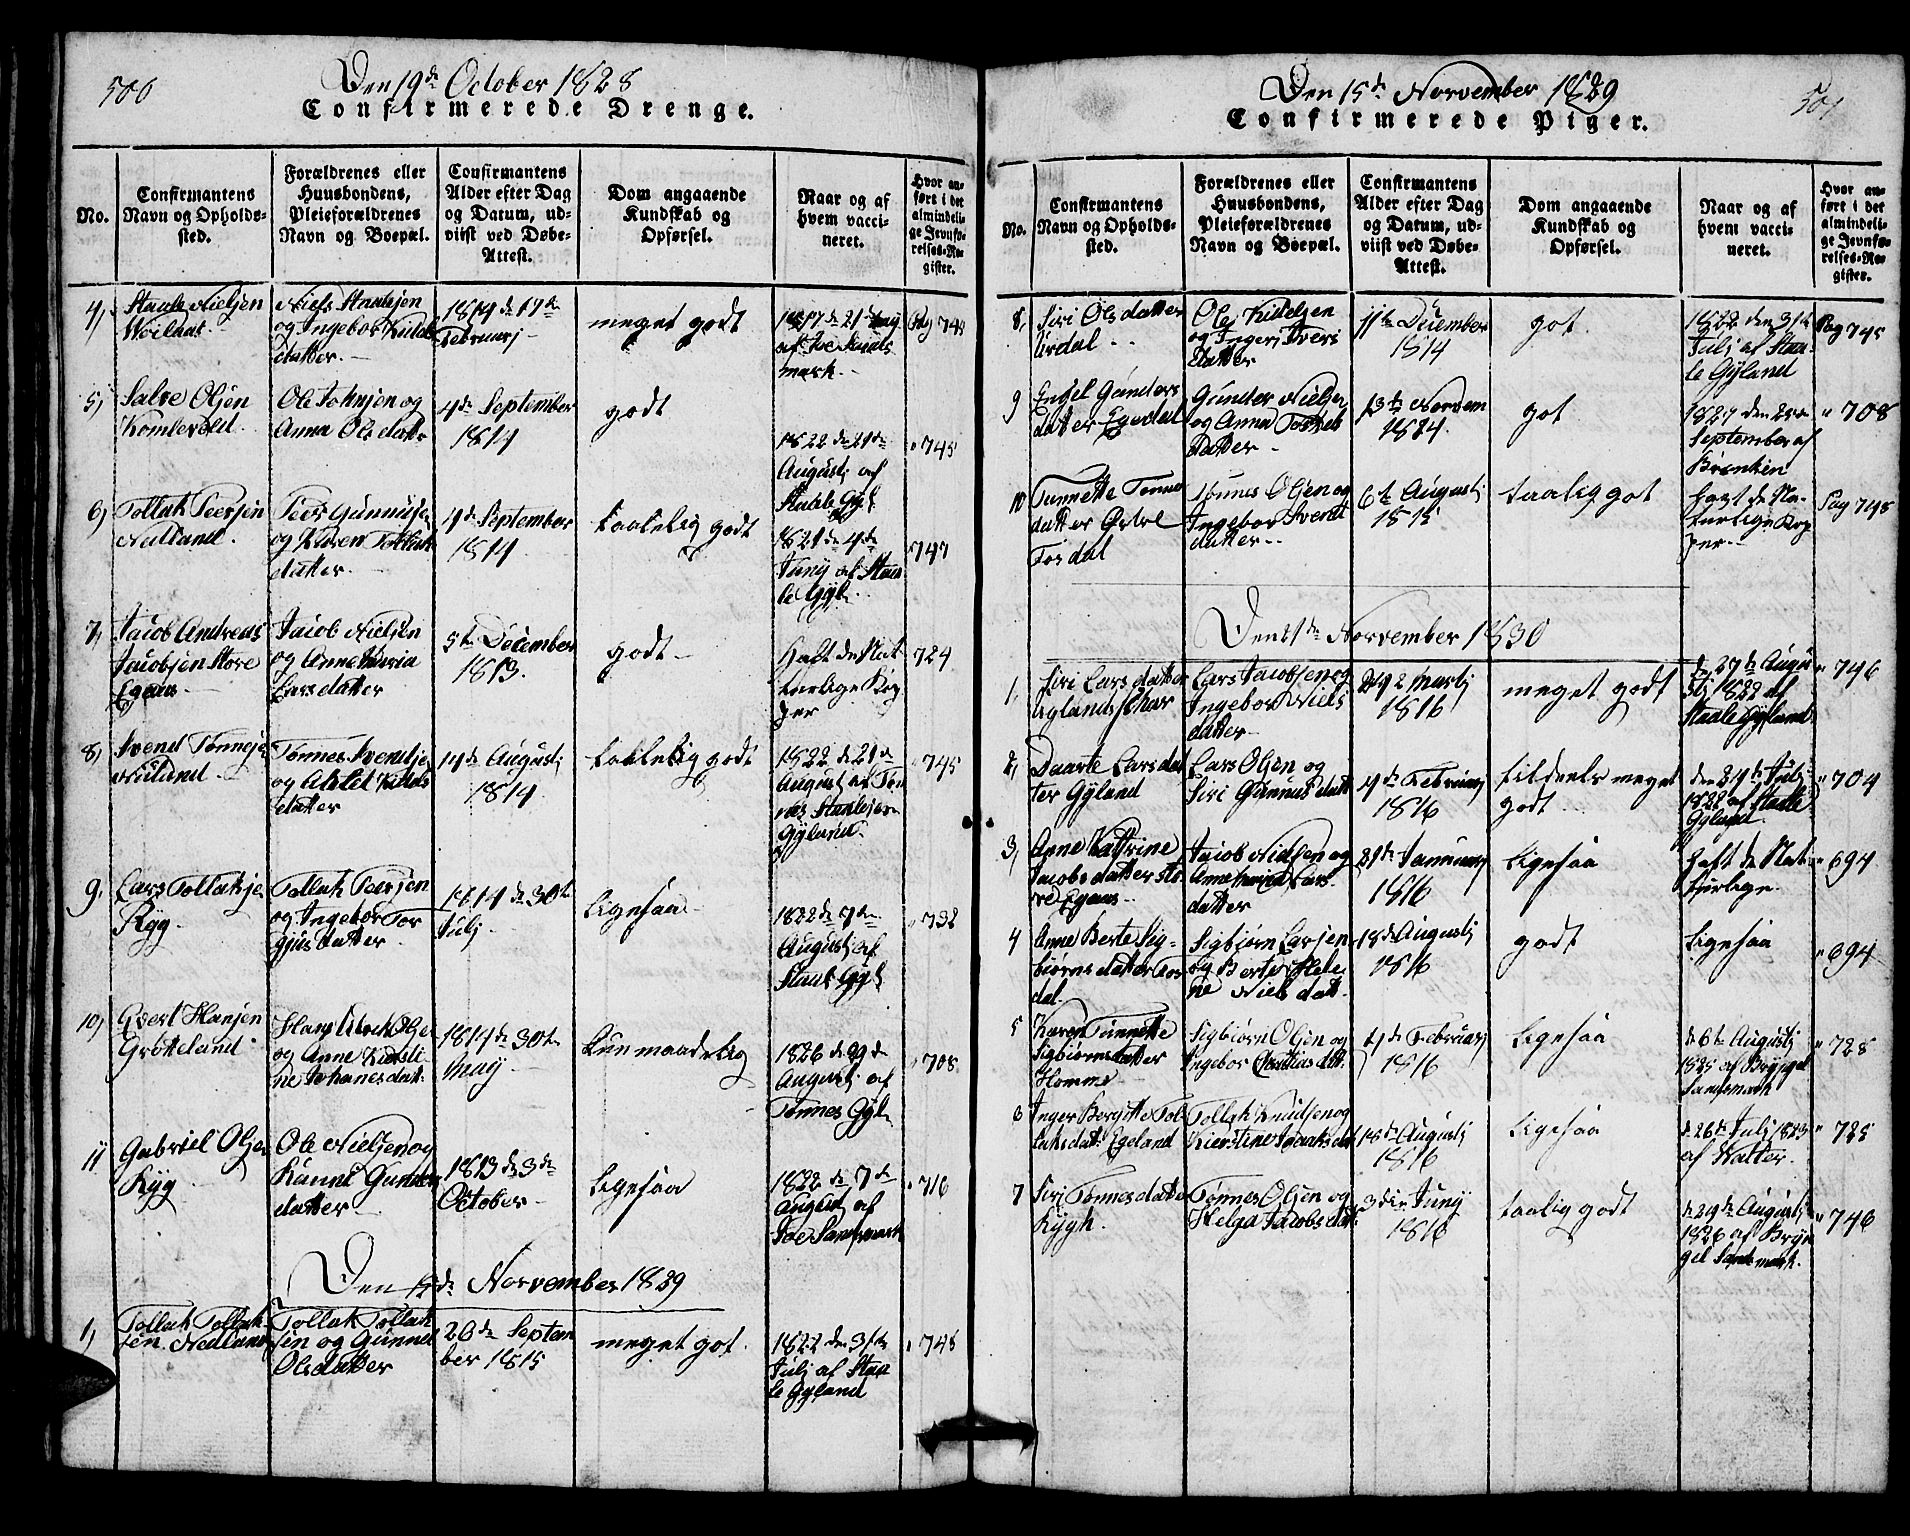 500
Den 19de October 1828
Confirmerede Drenge.
No.
Confirmantens Navn og Opholdssted.
Forældrenes eller Huusbondens, Pleieforældrenes Navn og Boepæl.
Confirmantens Alder efter Dag og Datum, udviist ved Døbe-Attest.
Dom angaaende Kundskab og Opførsel.
Naar og af hvem vaccineret.
Hvor anført i det almindelige Jevnførelses-Register.
4,
Staale Nielsen
Niels Staalesen
og Ingebor
datter.
1814 de 17te
Februarj
meget godt
mark.
Pag 748
5,
Salve Olsen
Ole Johnsen og
Anna Olsdatt
4de September
1814
godt
1822 de 21de
Augustj af
Staale Gyl
" 745
6,
Tollak Peersen
Peer Gunnusen
og Karen Tollak
datter.
4de September
1814
taalelig godt
1821 de 4de
Junij af Staa
le Gyl.
747
7,
Jacob Andreas
Jacobsen Store
Egaas
Jacob Nielsen
og Anne Maria
Larsdatter
5te December
1813.
godt
Haft de Nat
turlige Kop
per
724
8,
Svend Tønnese
Tønnes Svendse
datter
14de Augustj
1814
taalelig godt
1822 de 21de
August af Tøn
nes Staalesen
Gyland.
" 745
9,
Lars Tollakse
Ryg.
Tollak Peersen
og Ingebor Tor
gjusdatter.
1814 de 30te
Julj
Ligesaa
1822 de 7de
Augustj af
Staale Gyl
" 732
10,
Gvert Hansen
Grøtteland
og Anne Kirsti
ne Johanesdat.
1814 de 30te
May
kun maadelig
1826 de 29de
Augustj af
Tønnes Gyl
" 708
11
Gabriel Olse
Ryg
Ole Nielsen og
datter
1813 de 3de
October
Ligesaa
1822 de 7de
August af
" 716
Den de November 1829
1,
Tollak Tollak
sen Nedland
Tollak Tollak
sen og Gunnel
Olsdatter
26de Septem
ber 1815
meget got.
1822 den 31te
Julj af Staa
le Gyland
" 748
Den 15de November 1829
501
Confirmerede Piger.
No.
Confirmantens Navn og Opholdssted.
Forældrenes eller Huusbondens, Pleieforældrenes Navn og Boepæl.
Confirmantens Alder efter Dag og Datum, udviist ved Døbe-Attest.
Dom angaaende Kundskab og Opførsel.
Naar og af hvem vaccineret.
Hvor anført i det almindelige Jevnførelses-Register.
8,
Siri Olsdatter
Urdal
datter
11te December
1814
got.
1822 den 31te
Julj af Staa
le Gyland
Pag 745
9
Engel Gunders
datter Egedal
Gunder Nielsen
og Anna
datter
13te Novem
1814.
got
1827 den
September af
" 708
10
Tunnette Tønnes
datter
Tosdal
Tønnes Olsen og
Ingebor Svend
datter
6te Augustj
1815
taalig got
Havt de Na
turlige Kop
per
Pag 748
Den de November 1830
1,
Siri Larsdatter
Lars Jacobsen og
Ingebor Niels
datter
Martj
1816
meget godt
de 27de Augu
stj 1822 af
Staale Gyland
" 746
2,
Daarte Larsdat
ter Gyland
Lars Olsen og
Siri Gunnusdatt
Februarj
1816
tildeels meget
godt.
den 24de Julj
1822 af Staale
Gyland
" 704
3,
Anne Kattrine
Jacobsdatter sto
re Egaas
Jacob Nielsen og
Anne Maria Lars
datter
Januarj
1816
Ligesaa
Haft de Nat
turlige
" 694
4
Anne Berte Sig
biørnsdatter Tos
dal.
Sigbiørn Larsen
og Berte Hele
ne Nielsdatt.
18de Augustj
1816
godt
Ligesaa
" 694
5
Karen Tunnette
Sigbiørnsdatter
Homme
Sigbiørn Olsen og
Ingebor
Februarj
1816
Ligesaa
de 6te Augustj
1825 af Bryngel
Sandsmark
" 728
6
Inger Bergitte Tol
laksdat. Egeland
Tollak Knudsen og
Kierstine Isaaksdat
18de Augustj
1816
Ligesaa
de 26te Julj 1823
af Walter.
" 725
7
Siri Tønnesdatter
Rygh.
Tønnes Olsen og
Helga Jacobsdat
3die Junij
1816
taalig godt
de 29de Augustj
1826 af Bryn
gel Sandsmark.
" 746